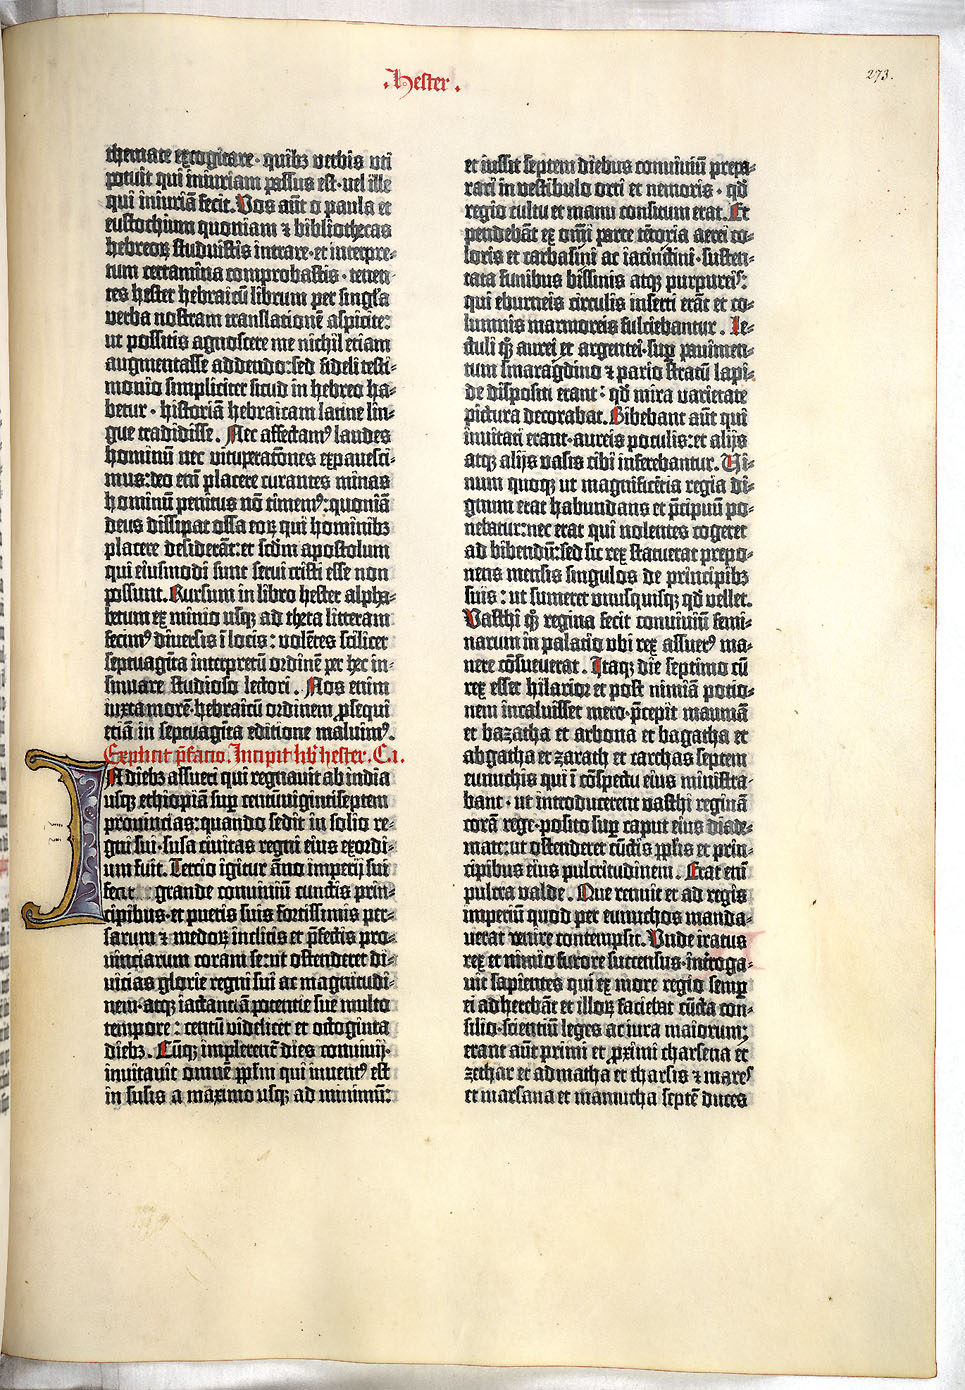 .Hester.
273.
themate excogitare· quibꝫ verbis uti
potuit qui iniuriam passus est· vel ille
qui iniuriā fecit. Vos aūt o paula et
eustochium quoniam ⁊ bibliothecas
hebreoꝝ studuistis intrare· et interpre-
tum certamina comprobastis· tenen-
tes hester hebraicū librum per singla
verba nostram translationē aspicite:
ut possitis agnoscere me nichil etiam
augmentasse addendo: sed fideli testi-
monio simpliciter sicud in hebreo ha-
betur· historiā hebraicam latine lin-
gue tradidisse. Nec affectamꝰ laudes
hominū nec vituperatōnes expavesci-
mus: deo em̄ placere curantes minas
hominū penitus nō timemꝰ: quoniā
deus dissipat ossa eoꝝ qui hominibꝫ
placere desiderāt: et scd̄m apostolum
qui eiusmodi sunt servi cristi esse non
possunt. Rursum in libro hester alpha-
betum ex minio usqꝫ ad theta litteram
fecimꝰ diversis ī locis: volētes scilicet
septuaginta interpretū ordinē per hec in-
sinuare studioso lectori. Nos etiim
iuxta morē hebraicū ordinem ꝓsequi
etiā in septuagīta editione maluimꝰ.
Explicit p̄facio. Incipit lib̄ hester. C. i.
IN diebꝫ assueri qui regnavit ab india
usqꝫ ethiopiā sup̄ centūvigintiseptem
provincias: quando sedit in solio re-
gni sui· susa civitas regni eius exordi-
um fuit. Tercio igitur āno imperij sui
fecit grande conviviū cunctis prin-
cipibus· et pueris suis fortissimis per-
sarum ⁊ medoꝝ inclitis et p̄fectis pro-
vinciarum coram se: ut ostenderet di-
vicias glorie regni sui ac magnitudi-
nem· atqꝫ iactantiā potentie sue multo
tempore: centū videlicet et octoginta
diebꝫ. Cūqꝫ implerent̄ dies convivij·
invitavit omnē ppl̄m qui inventꝰ est
in susis a maximo usqꝫ ad minimū:
et iussit septem diebus conviviū prepa-
rari in vestibulo orti et nemoris· qd̄
regio cultu et manu consitum erat. Et
pendebāt ex om̄i parte tētoria aerei co-
loris et carbasini ac iacinctini· susten-
tata funibus bissinis atqꝫ purpureis:
qui eburneis circulis inserti erāt et co-
lumnis marmoreis fulciebantur. Le-
ctuli qꝫ aurei et argentei· sup̄ pavimen-
tum smaragdino ⁊ pario stratū lapi-
de dispositi erant: qd̄ mira varietate
pictura decorabat. Bibebant aūt qui
invitati erant· aureis poculis: et alijs
atqꝫ alijs vasis cibi inferebantur. Vi-
num quoqꝫ ut magnificētia regia di-
gnum erat habundans et p̄cipuū po-
nebatur: nec erat qui nolentes cogeret
ad bibendū: sed sic rex statuerat prepo-
nens mensis singulos de principibꝫ
suis: ut sumeret unusquisqꝫ qd̄ vellet.
Vasthi qꝫ regina fecit conviviū femi-
narum in palacio ubi rex assuerꝰ ma-
nere cōsueverat. Itaqꝫ die septimo cū
rex esset hilarior et post nimiā potio-
nem incaluisset mero· p̄cepit maumā
et bazatha et arbona et bagatha et
abgatha et zarath et carchas septem
eunuchis qui ī cōspectu eius ministra-
bant· ut introducerent vasthi reginā
corā rege· posito sup̄ caput eius diade-
mate: ut ostenderet cūctis ppl̄is et prin-
cipibus eius pulcritudinem. Erat em̄
pulcra valde. Que renuit et ad regis
imperiū quod per eunuchos manda-
verat venire contempsit. Unde iratus
rex et nimio furore succensus· īterroga-
vit sapientes qui ex more regio semp̄
ei adherebāt et illoꝝ faciebat cūcta con-
silio· scientiū leges ac iura maiorum:
erant aūt primi et ꝓximi charsena et
zethar et admatha et tharsis ⁊ mares
et marsana et mamucha septē duces